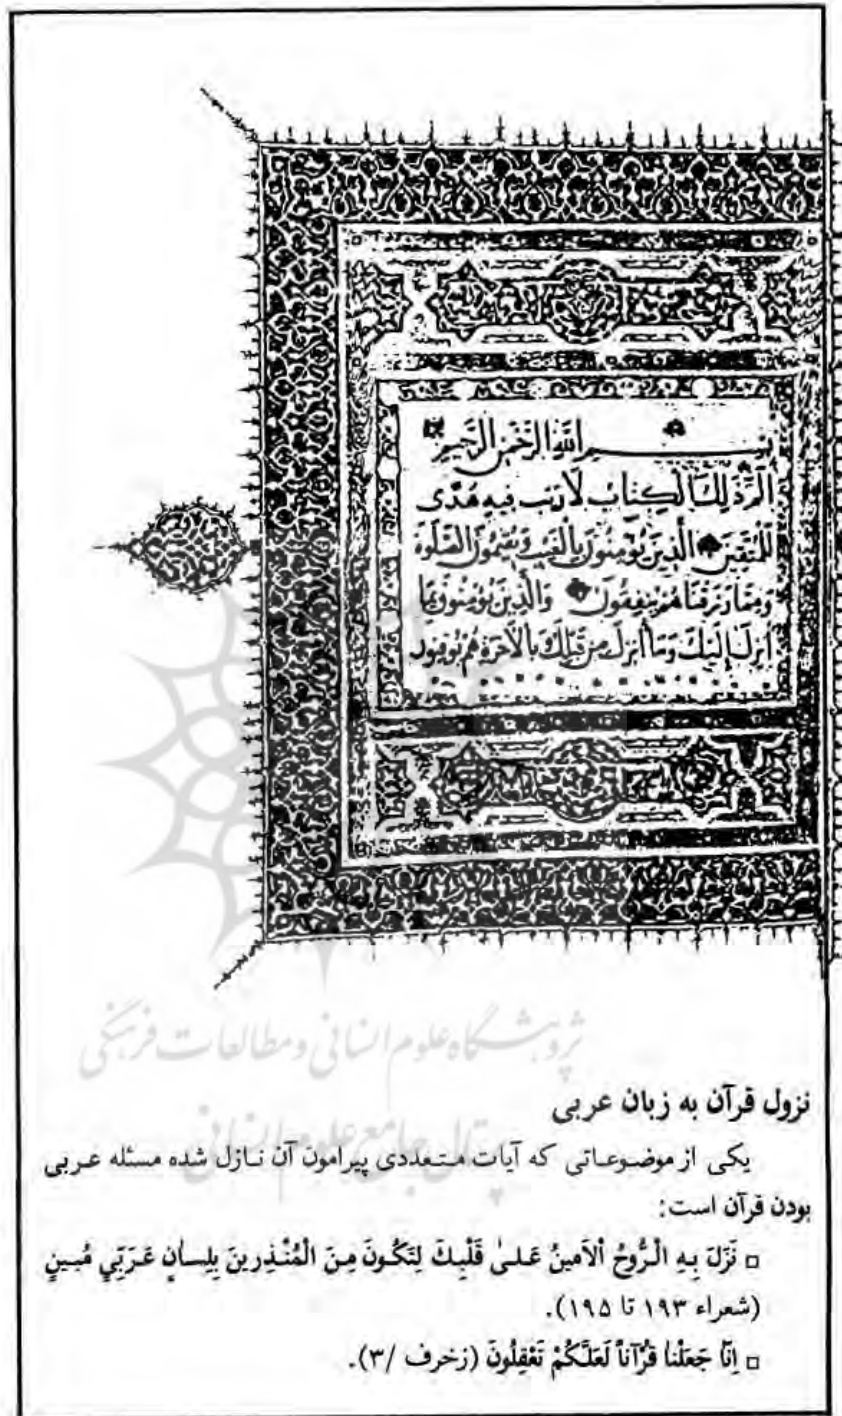 بسم الله الرحمن الرحیم
الم ذلك الكتاب لا ريب فيه هدى
للمتقين الذين يؤمنون بالغيب ويقيمون الصلوة
ومما رزقناهم ينفقون والذين يؤمنون بما
انزل اليك وما انزل من قبلك بالآخرة هم يوقنون
پژوهشگاه علوم انسانی و مطالعات فرهنگی
پرتال جامع علوم انسانی
نزول قرآن به زبان عربی
یکی از موضوعاتی که آیات متعددی پیرامون آن نازل شده مسئله عربی
بودن قرآن است:
□ نَزَلَ بِهِ الرُّوحُ اْلاَمينُ عَلىٰ قَلْبِكَ لِتَكُونَ مِنَ الْمُنْذِرينَ بِلِسانٍ عَرَبّيٍ مُبينٍ
(شعراء ۱۹۳ تا ۱۹۵).
□ اِنّا جَعَلْناٰ قُرْآناً لَعَلَّكُمْ تَعْقِلُونَ (زخرف /۳).